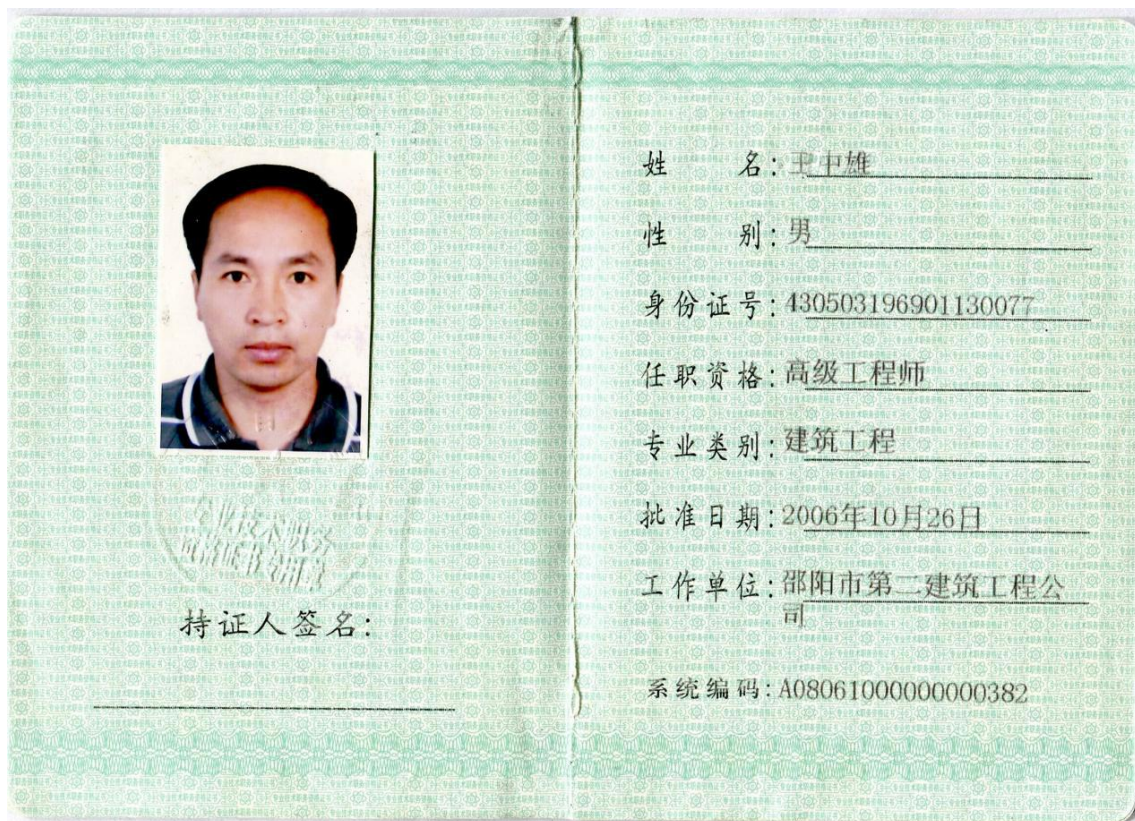 持证人签名:
姓 名:王中雄
性 别:男
身份证号:430503196901130077
任职资格:高级工程师
专业类别:建筑工程
批准日期:2006年10月26日
工作单位:邵阳市第二建筑工程公
司
系统编码:A08061000000000382